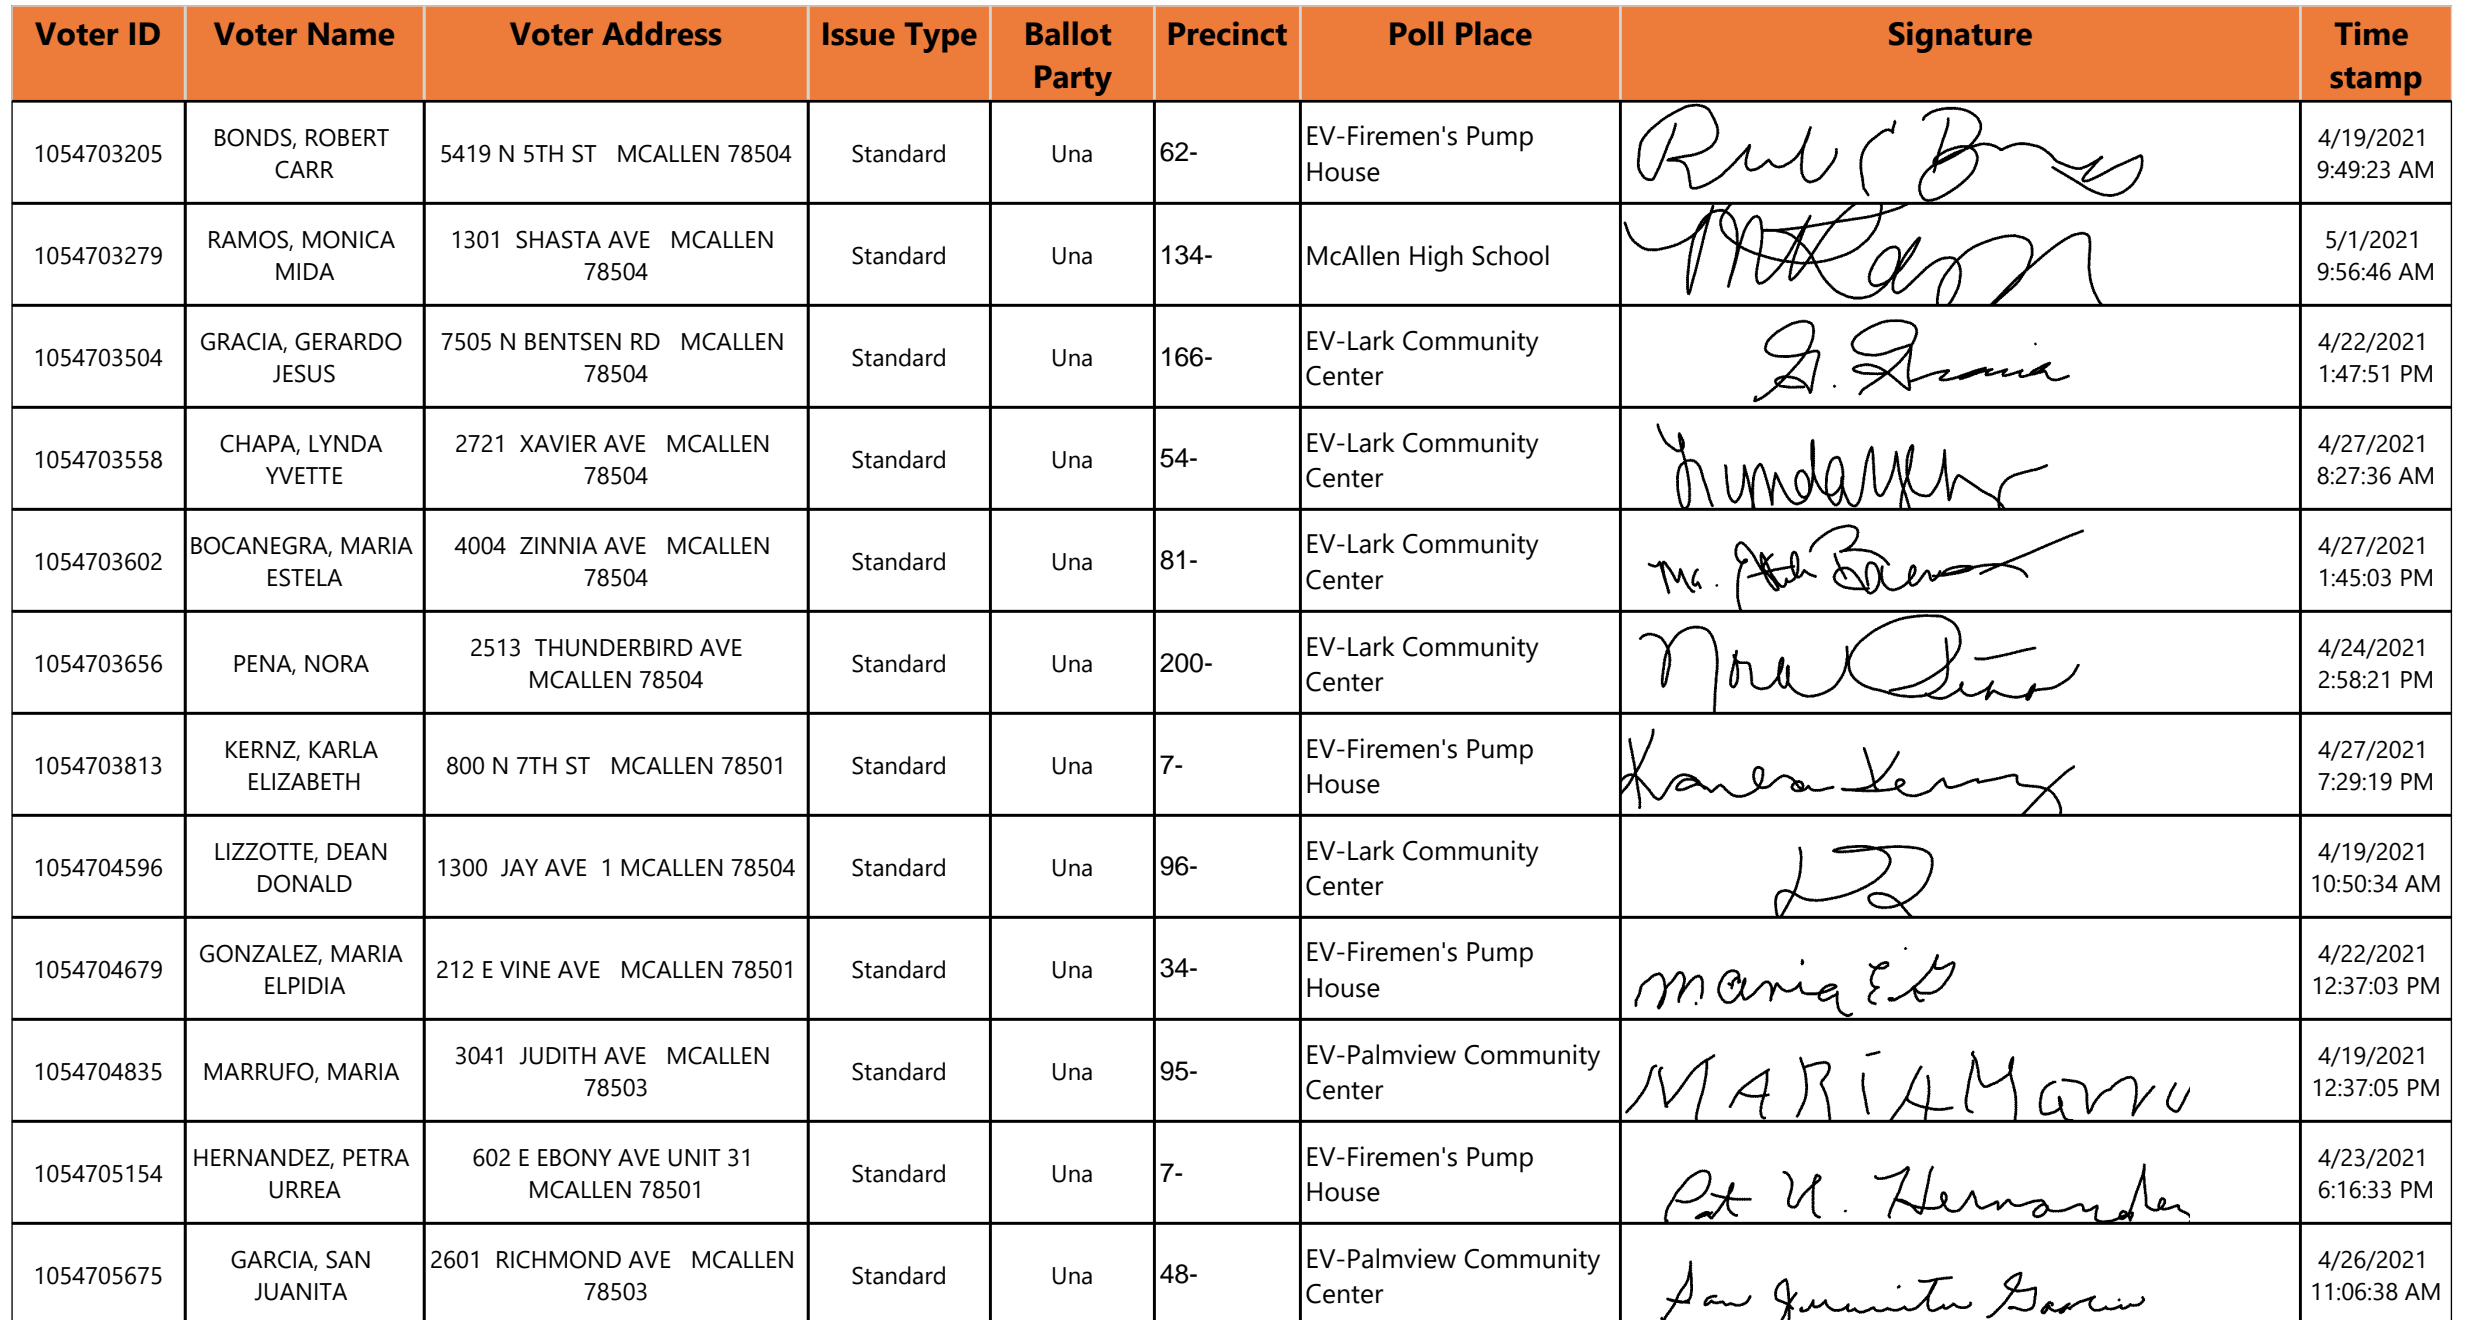 Voter ID Voter Name Voter Address Issue Type Ballot Party Precinct Poll Place Signature Time stamp
1054703205 BONDS, ROBERT CARR 5419 N 5TH ST MCALLEN 78504 Standard Una 62- EV-Firemen's Pump House 4/19/2021 9:49:23 AM
1054703279 RAMOS, MONICA MIDA 1301 SHASTA AVE MCALLEN 78504 Standard Una 134- McAllen High School 5/1/2021 9:56:46 AM
1054703504 GRACIA, GERARDO JESUS 7505 N BENTSEN RD MCALLEN 78504 Standard Una 166- EV-Lark Community Center G. Gracia 4/22/2021 1:47:51 PM
1054703558 CHAPA, LYNDA YVETTE 2721 XAVIER AVE MCALLEN 78504 Standard Una 54- EV-Lark Community Center 4/27/2021 8:27:36 AM
1054703602 BOCANEGRA, MARIA ESTELA 4004 ZINNIA AVE MCALLEN 78504 Standard Una 81- EV-Lark Community Center 4/27/2021 1:45:03 PM
1054703656 PENA, NORA 2513 THUNDERBIRD AVE MCALLEN 78504 Standard Una 200- EV-Lark Community Center Nora Peña 4/24/2021 2:58:21 PM
1054703813 KERNZ, KARLA ELIZABETH 800 N 7TH ST MCALLEN 78501 Standard Una 7- EV-Firemen's Pump House Karla Kernz 4/27/2021 7:29:19 PM
1054704596 LIZZOTTE, DEAN DONALD 1300 JAY AVE 1 MCALLEN 78504 Standard Una 96- EV-Lark Community Center 4/19/2021 10:50:34 AM
1054704679 GONZALEZ, MARIA ELPIDIA 212 E VINE AVE MCALLEN 78501 Standard Una 34- EV-Firemen's Pump House Maria E G 4/22/2021 12:37:03 PM
1054704835 MARRUFO, MARIA 3041 JUDITH AVE MCALLEN 78503 Standard Una 95- EV-Palmview Community Center MARIA Marru 4/19/2021 12:37:05 PM
1054705154 HERNANDEZ, PETRA URREA 602 E EBONY AVE UNIT 31 MCALLEN 78501 Standard Una 7- EV-Firemen's Pump House Pat U. Hernandez 4/23/2021 6:16:33 PM
1054705675 GARCIA, SAN JUANITA 2601 RICHMOND AVE MCALLEN 78503 Standard Una 48- EV-Palmview Community Center San Juanita Garcia 4/26/2021 11:06:38 AM